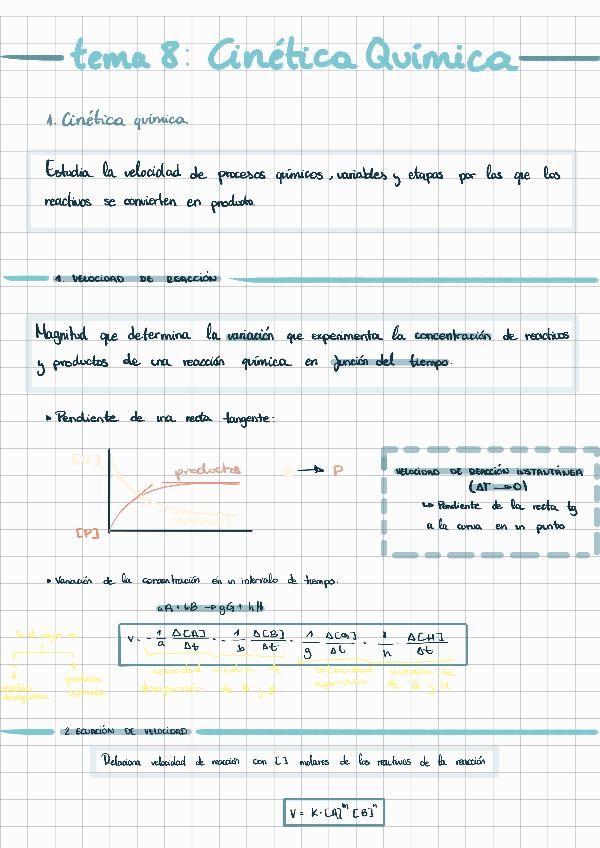 tema 8: Cinética Química
1. Cinética química
Estudia la velocidad de procesos químicos, variables y etapas por las que los
reactivos se convierten en producto
1. VELOCIDAD DE REACCIÓN
Magnitud que determina la variación que experimenta la concentración de reactivos
y productos de una reacción química en función del tiempo.
Pendiente de una recta tangente:
productos
[P]
→ P
VELOCIDAD DE REACCIÓN INSTANTÁNEA
(ΔT → 0)
↳ Pendiente de la recta tg
a la curva en un punto
Variación de la concentración en un intervalo de tiempo:
aA + bB → gG + hH
V = - 1/a Δ[A]/Δt = - 1/b Δ[B]/Δt = 1/g Δ[G]/Δt = 1/h · Δ[H]/Δt
velocidad media de
desaparición de A y B
velocidad media de
aparición de G y H
producto
2. ECUACIÓN DE VELOCIDAD
Relaciona velocidad de reacción con [ ] molares de los reactivos de la reacción
V = K · [A]^m [B]^n